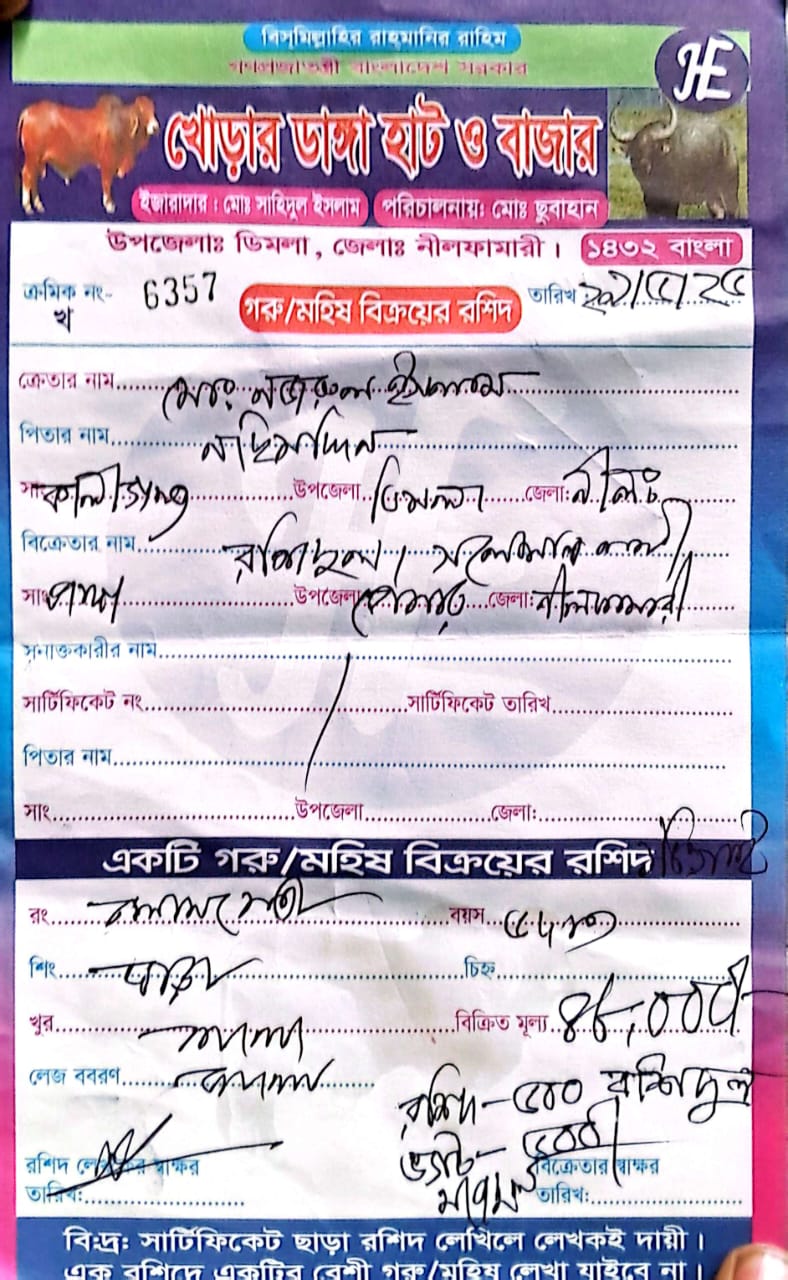 বিস্‌মিল্লাহির রাহ্‌মানির রাহিম
গণপ্রজাতন্ত্রী বাংলাদেশ সরকার
HE
খোড়ার ডাঙ্গা হাট ও বাজার
ইজারাদার : মোঃ সাহিদুল ইসলাম পরিচালনায়: মোঃ ছুবাহান
উপজেলাঃ ডিমলা, জেলাঃ নীলফামারী। ১৪৩২ বাংলা
ক্রমিক নং- 6357 গরু/মহিষ বিক্রয়ের রশিদ তারিখ
খ
ক্রেতার নাম মোঃ নজরুল ইসলাম
পিতার নাম নছিমদ্দিন
সাং কালীগঞ্জ উপজেলা ডিমলা জেলা: নীলঃ
বিক্রেতার নাম রশিদুল।
সাং উপজেলা জেলা: নীলফামারী
সনাক্তকারীর নাম
সার্টিফিকেট নং সার্টিফিকেট তারিখ
পিতার নাম
সাং উপজেলা জেলা:
একটি গরু/মহিষ বিক্রয়ের রশিদ
রং বয়স
শিং চিহ্ন
খুর বিক্রিত মূল্য ৪৮,০০০/-
লেজ ববরণ
রশিদ-৫০০ রশিদুল
ভ্যাট-
রশিদ লেখকের স্বাক্ষর বিক্রেতার স্বাক্ষর
তারিখ: তারিখ:
বি:দ্র: সার্টিফিকেট ছাড়া রশিদ লেখিলে লেখকই দায়ী।
এক রশিদে একটির বেশী গরু/মহিষ লেখা যাইবে না।